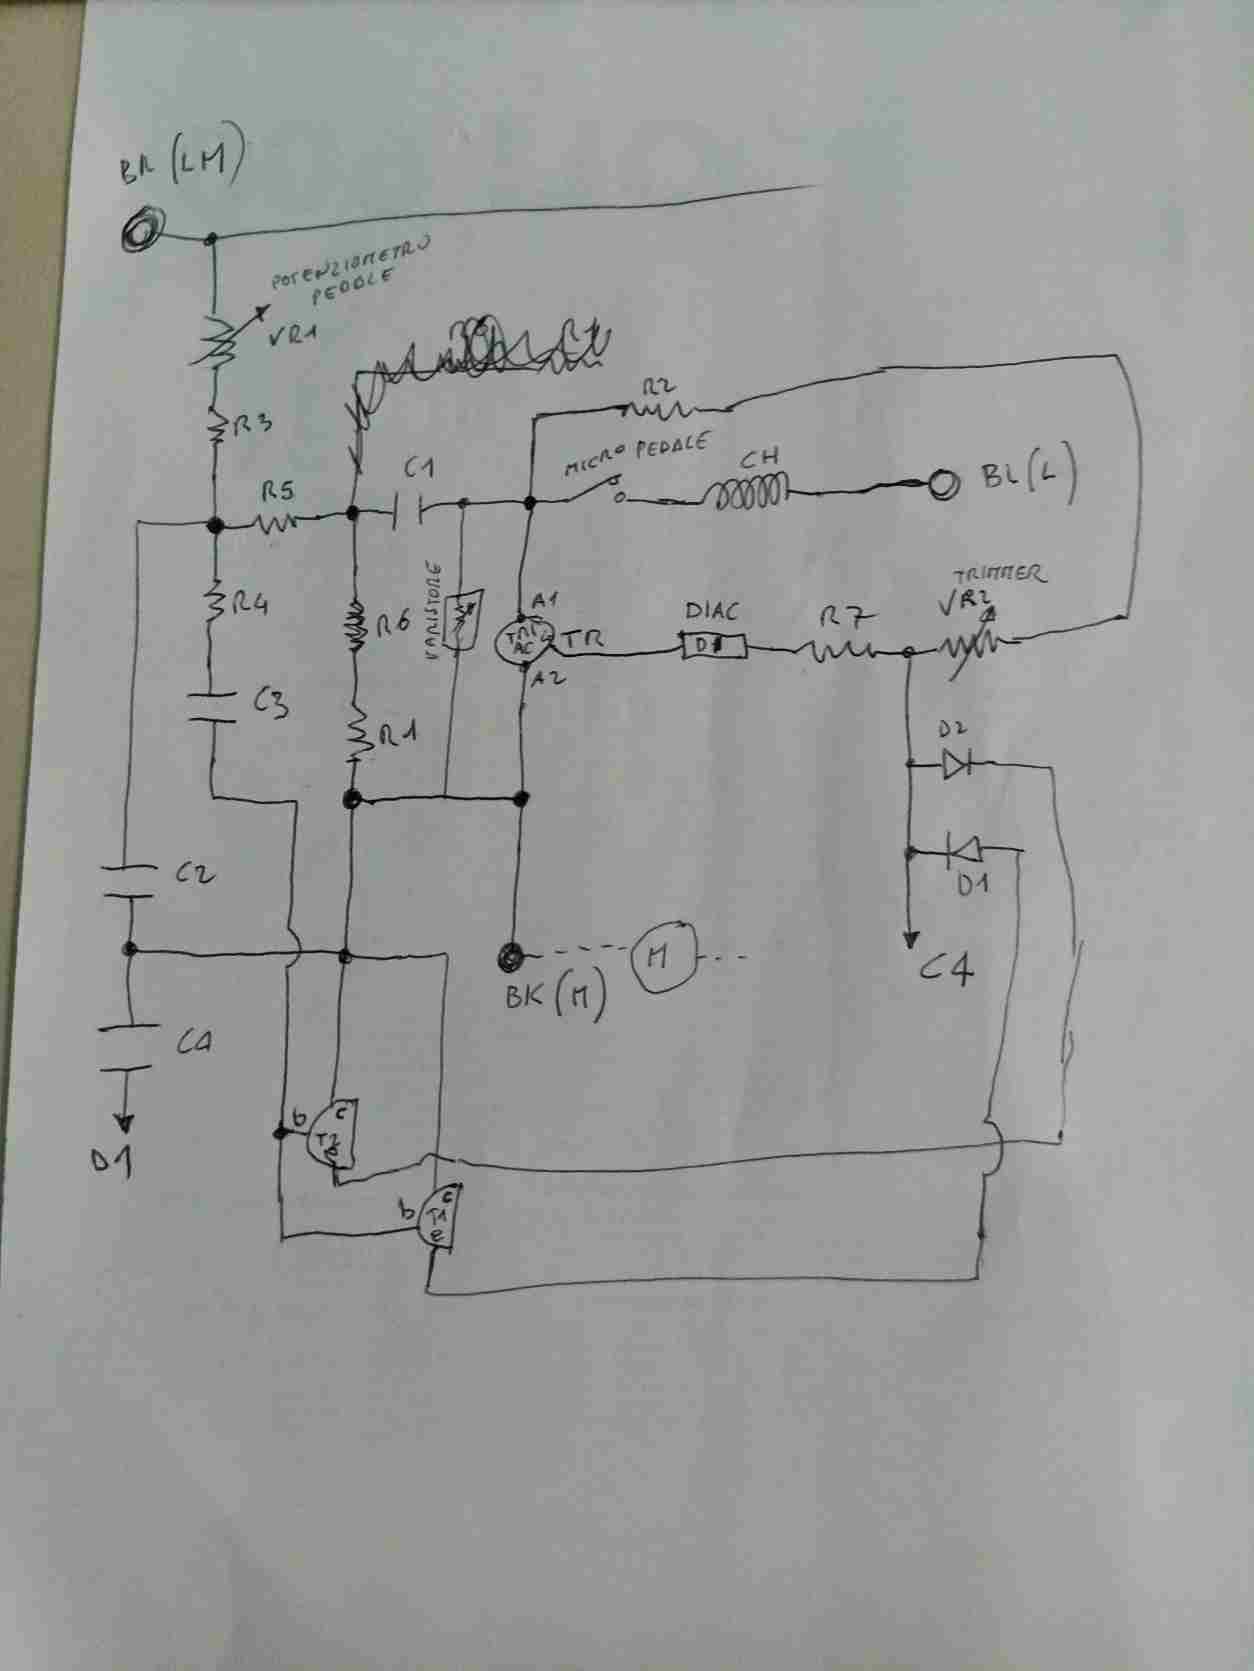 BR (LM)
POTENZIOMETRO
PEDALE
VR1
R3
R2
MICRO PEDALE
CH
BL (L)
C1
R5
R4
R6
VARISTORE
A1
TRI
AC
TR
A2
DIAC
R7
TRIMMER
VR2
C3
R1
D2
D1
C2
C4
BK (M)
M
C4
D1
b
c
T2
e
b
c
T1
e